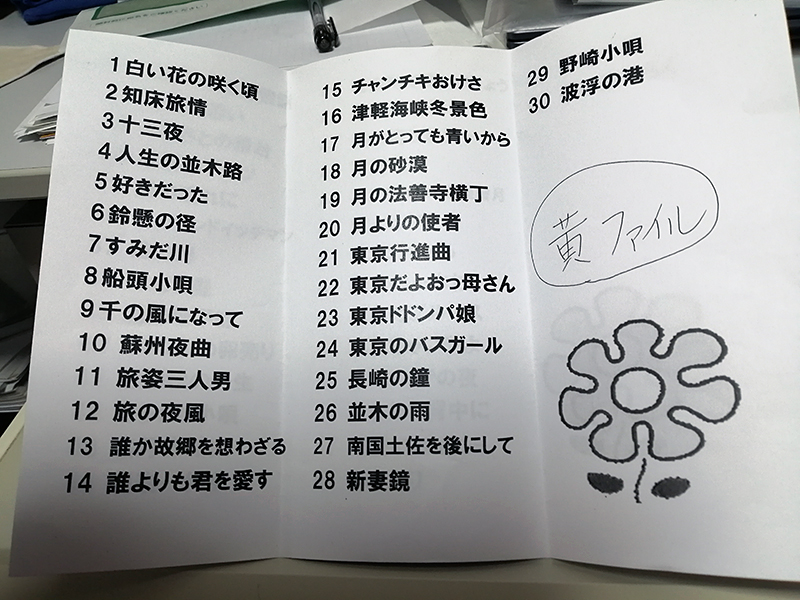 1 白い花の咲く頃
2 知床旅情
3 十三夜
4 人生の並木路
5 好きだった
6 鈴懸の径
7 すみだ川
8 船頭小唄
9 千の風になって
10 蘇州夜曲
11 旅姿三人男
12 旅の夜風
13 誰か故郷を想わざる
14 誰よりも君を愛す
15 チャンチキおけさ
16 津軽海峡冬景色
17 月がとっても青いから
18 月の砂漠
19 月の法善寺横丁
20 月よりの使者
21 東京行進曲
22 東京だよおっ母さん
23 東京ドドンパ娘
24 東京のバスガール
25 長崎の鐘
26 並木の雨
27 南国土佐を後にして
28 新妻鏡
29 野崎小唄
30 波浮の港
黄ファイル